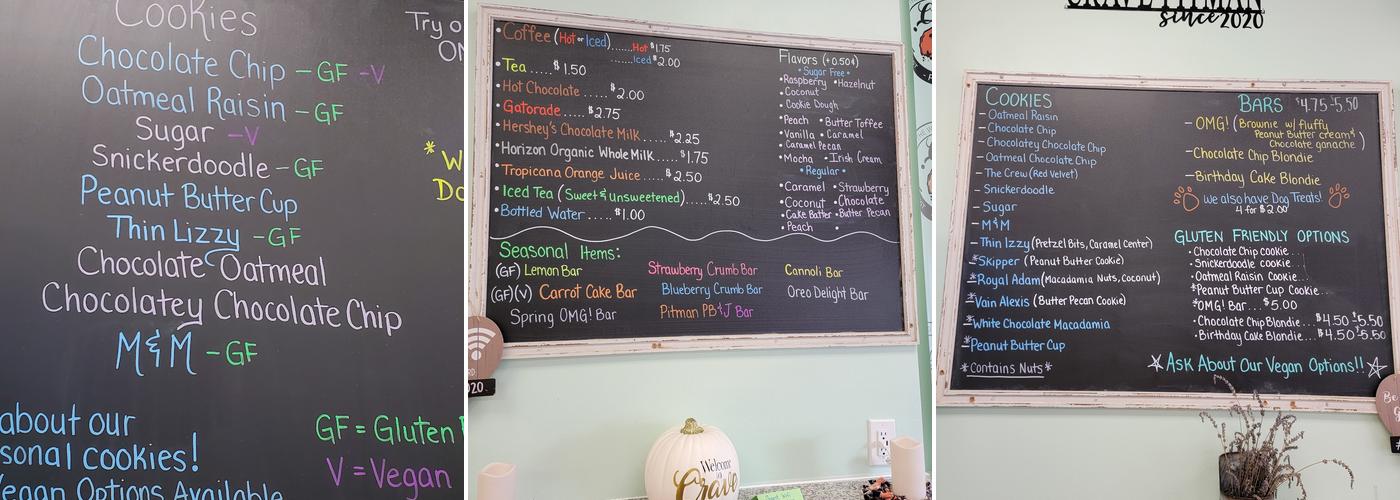 Cookies
Chocolate Chip - GF - V
Oatmeal Raisin - GF
Sugar - V
Snickerdoodle - GF
Peanut Butter Cup
Thin Lizzy - GF
Chocolate Oatmeal
Chocolatey Chocolate Chip
M&M - GF
about our
sonal cookies!
Vegan Options Available
GF = Gluten
V = Vegan
Try o
ON
*W
Do
Coffee (Hot or Iced).......Hot $1.75
.......Iced $2.00
Tea.....$1.50
Hot Chocolate.....$2.00
Gatorade.....$2.75
Hershey's Chocolate Milk....$2.25
Horizon Organic Whole Milk....$1.75
Tropicana Orange Juice....$2.50
Iced Tea (Sweet & Unsweetened).....$2.50
Bottled Water.....$1.00
Flavors (+0.50¢)
• Sugar Free •
• Raspberry • Hazelnut
• Coconut
• Cookie Dough
• Peach • Butter Toffee
• Vanilla • Caramel
• Caramel Pecan
• Mocha • Irish Cream
• Regular •
• Caramel • Strawberry
• Coconut • Chocolate
• Cake Batter • Butter Pecan
• Peach
Seasonal Items:
(GF) Lemon Bar
(GF)(V) Carrot Cake Bar
Spring OMG! Bar
Strawberry Crumb Bar
Blueberry Crumb Bar
Pitman PB & J Bar
Cannoli Bar
Oreo Delight Bar
2020
Welcome
to
Crave
CRAVE PITMAN
since 2020
COOKIES
- Oatmeal Raisin
- Chocolate Chip
- Chocolatey Chocolate Chip
- Oatmeal Chocolate Chip
- The Crew (Red Velvet)
- Snickerdoodle
- Sugar
- M&M
- Thin Izzy (Pretzel Bits, Caramel Center)
*Skipper (Peanut Butter Cookie)
*Royal Adam (Macadamia Nuts, Coconut)
*Vain Alexis (Butter Pecan Cookie)
*White Chocolate Macadamia
*Peanut Butter Cup
*Contains Nuts*
BARS $4.75-5.50
- OMG! (Brownie w/ fluffy
Peanut Butter cream &
Chocolate ganache)
- Chocolate Chip Blondie
- Birthday Cake Blondie
We also have Dog Treats!
4 for $2.00
GLUTEN FRIENDLY OPTIONS
• Chocolate Chip cookie...
• Snickerdoodle cookie...
• Oatmeal Raisin Cookie...
*Peanut Butter Cup Cookie...
*OMG! Bar...$5.00
• Chocolate Chip Blondie...$4.50-$5.50
• Birthday Cake Blondie...$4.50-5.50
☆ Ask About Our Vegan Options!! ☆
Be